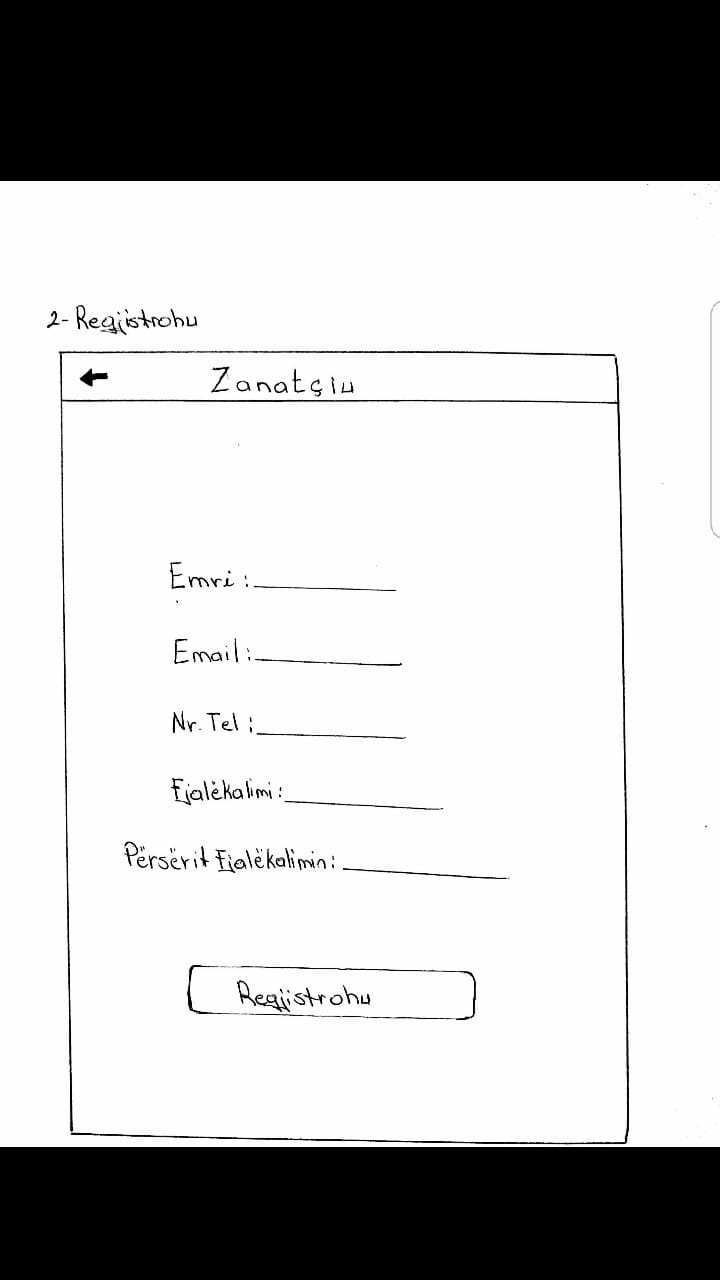 2- Regjistrohu
Zanatçiu
Emri :
Email :
Nr. Tel :
Fjalëkalimi :
Përsërit Fjalëkalimin :
Regjistrohu